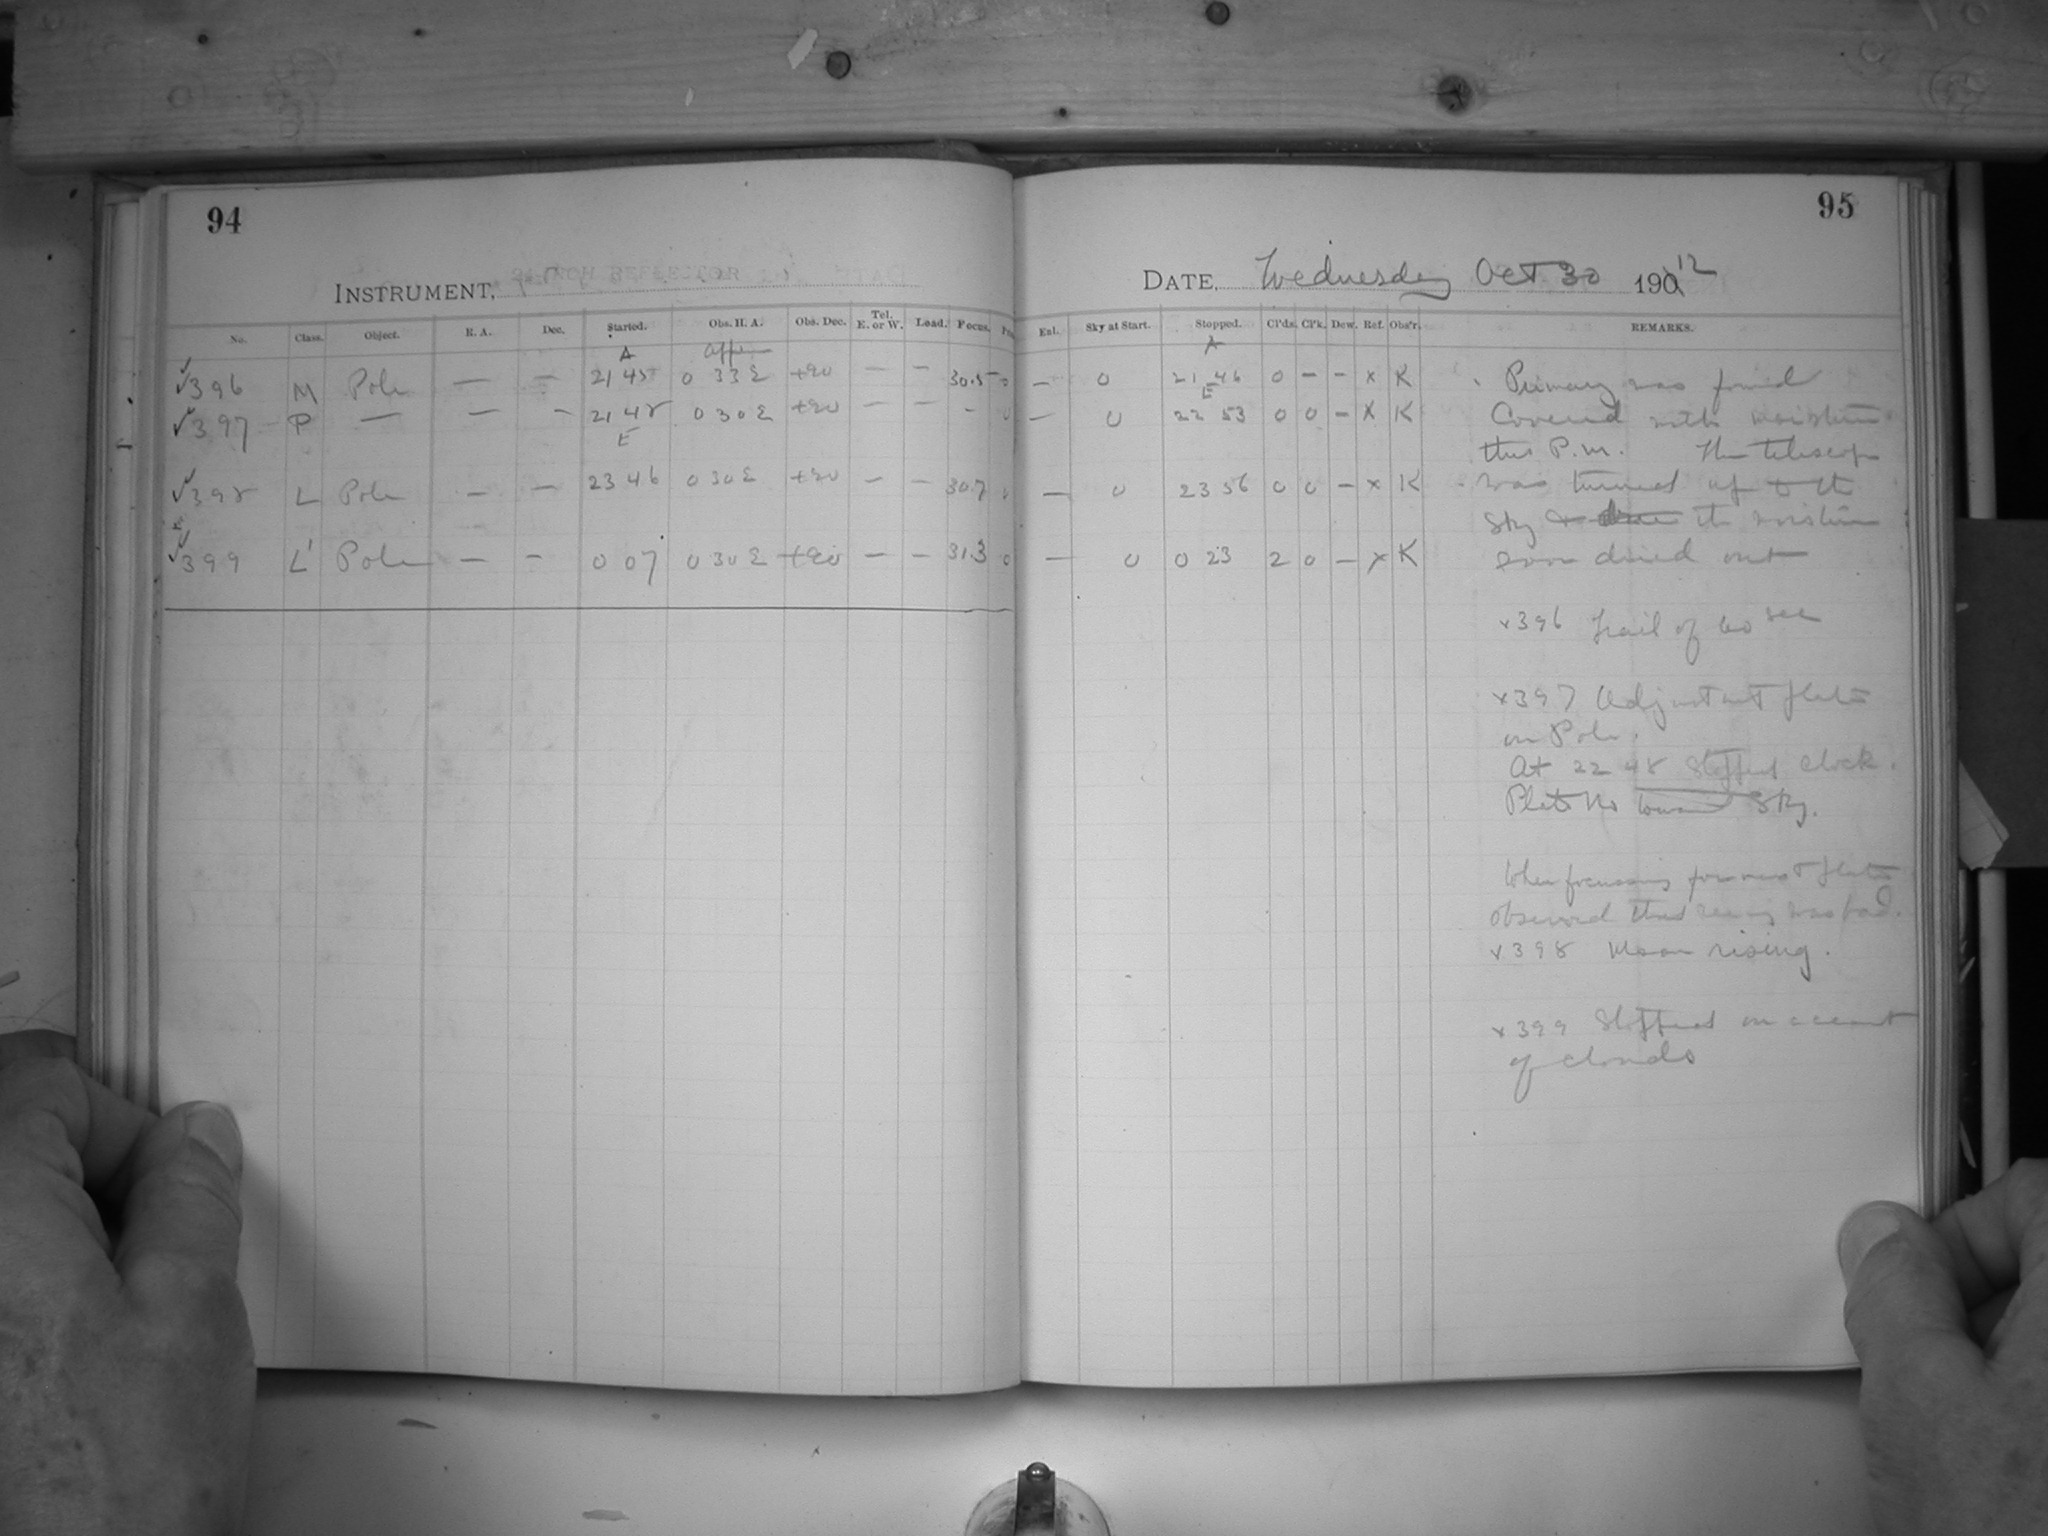 94
95
INSTRUMENT,
DATE, Wednesday Oct 30 1912
No. Class. Object. R. A. Dec. Started. Obs. H. A. Obs. Dec. Tel. E. or W. Load. Focus.
Enl. Sky at Start. Stopped. Cl'ds. Cl'k. Dew. Ref. Obs'r. REMARKS.
A
A
√396 M Pole — — 21 45 0 33 E +90 — — 30.5 0 — 0 21 46 0 — — x K
E
√397 P — — — 21 48 0 30 E +90 — — - 0 — 0 22 53 0 0 — x K
E
√398 L Pole — — 23 46 0 30 E +90 — — 30.7 — 0 23 56 0 0 — x K
√399 L' Pole — — 0 07 0 30 E +90 — — 31.3 0 — 0 0 23 2 0 — x K
Primary was found
Covered with moisture
this P.M. The telescope
was turned up to the
Sky the moisture
soon dried out
x396 Trail of 60 sec
x397 Adjustment plate
on Pole.
At 22 48 Stopped clock.
Plate No toward Sky.
When focussing for next plate
observed that seeing was bad.
x398 Moon rising.
x399 Stopped on account
of clouds